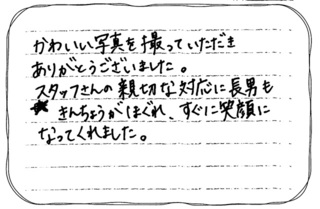 かわいい写真を撮っていただき
ありがとうございました。
スタッフさんの親切な対応に長男も
きんちょうがほぐれ、すぐに笑顔に
なってくれました。